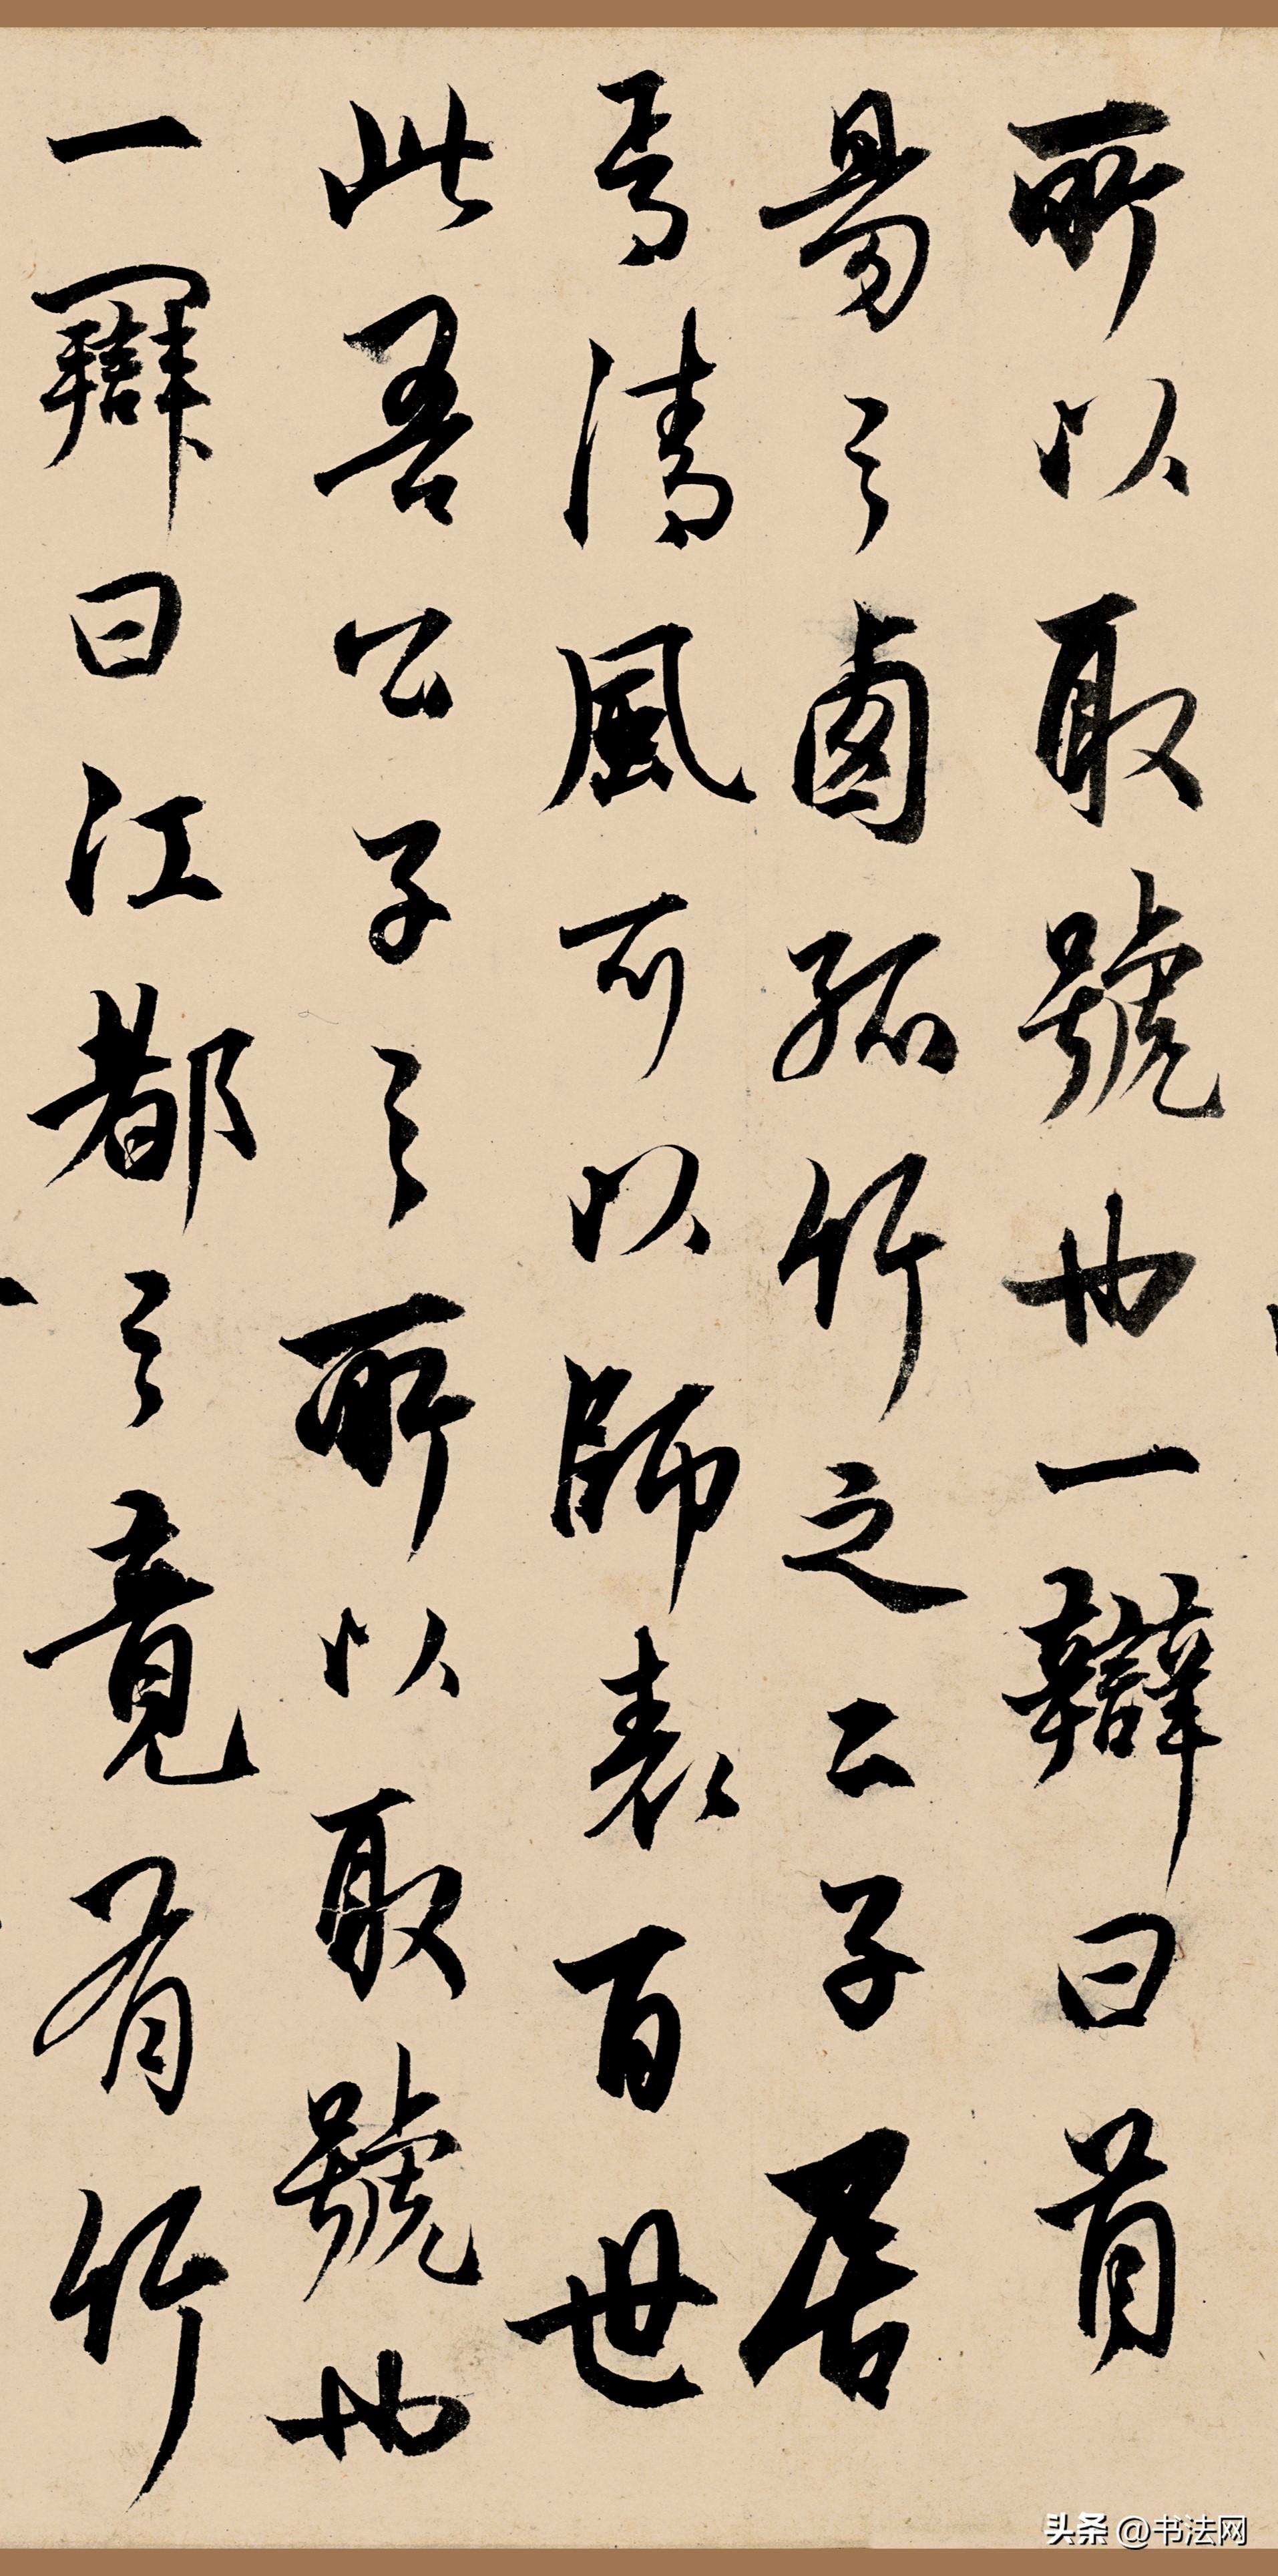 所以取號也一辯曰首
昜之卤孤竹之二子居
焉清風可以師表百世
此吾公子之所以取號也
一辯曰江都之竟有竹
头条 @书法网